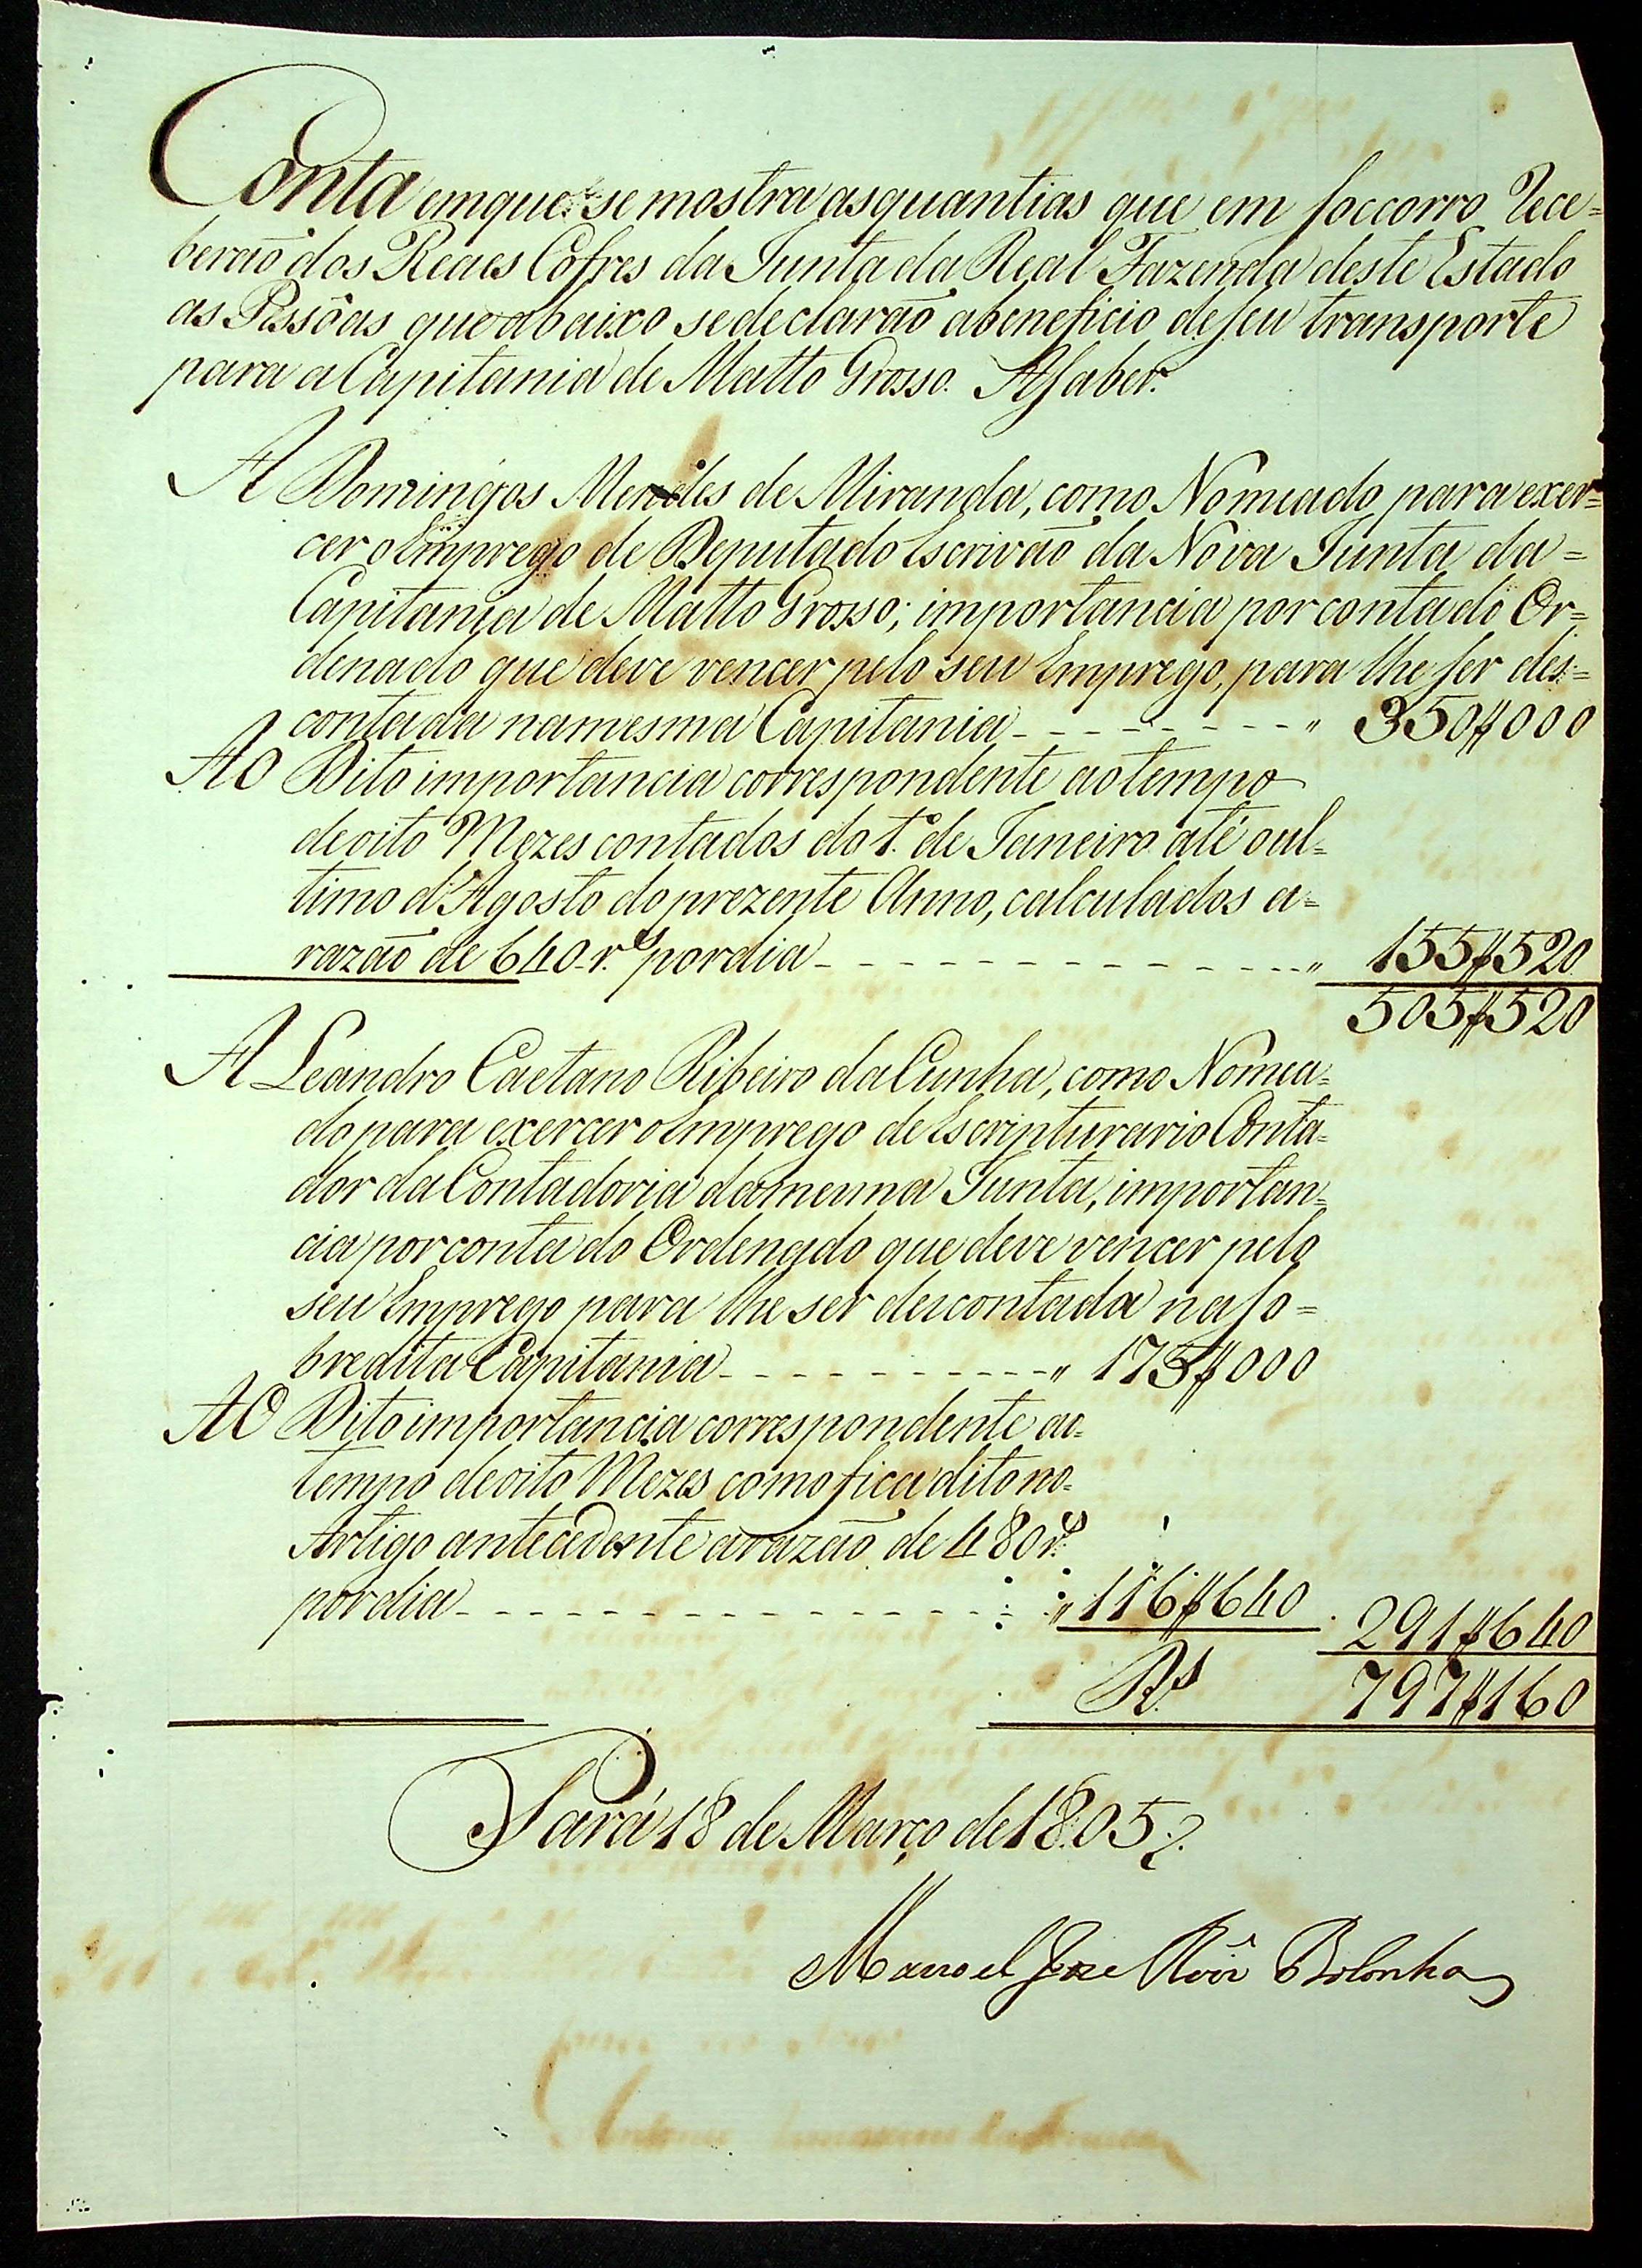 Conta emque se mostra as quantias que em soccorro Rece=
berão dos Reaes Cofres da Junta da Real Fazenda deste Estado
as Pessôas que abaixo se declarão abeneficio de seu transporte
para a Capitania de Matto Grosso. Asaber.
A Domingos Mendes de Miranda, como Nomeado para exer=
cer o Emprego de Deputado Escrivaõ da Nova Junta da=
Capitania de Matto Grosso; importancia por conta do Or=
denado que deve vencer pelo seu Emprego, para lhe ser des=
contada namesma Capitania - - - - - - - - " 350$000
Ao Dito importancia correspondente ao tempo
de oito Mezes contados do 1.º de Janeiro até oul=
timo d'Agosto do prezente Anno, calculados a=
razaõ de 640 r.es por dia - - - - - - - - - - - - - - - " 155$520
505$520
A Leandro Caetano Ribeiro da Cunha, como Nomea=
do para exercer o Emprego de Escripturario Conta=
dor da Contadoria damesma Junta, importan=
cia por conta do Ordenado que deve vencer pelo
seu Emprego para lhe ser descontada na so=
bredita Capitania - - - - - - - - - - - " 175$000
Ao Dito importancia correspondente ao=
tempo de oito Mezes como fica dito no=
Artigo antecedente arazaõ de 480 r.es
por dia - - - - - - - - - - - - - - - - " 116$640 291$640
R.s 797$160
Pará 18 de Março de 1805
Manoel Joze Roiz Bolonha